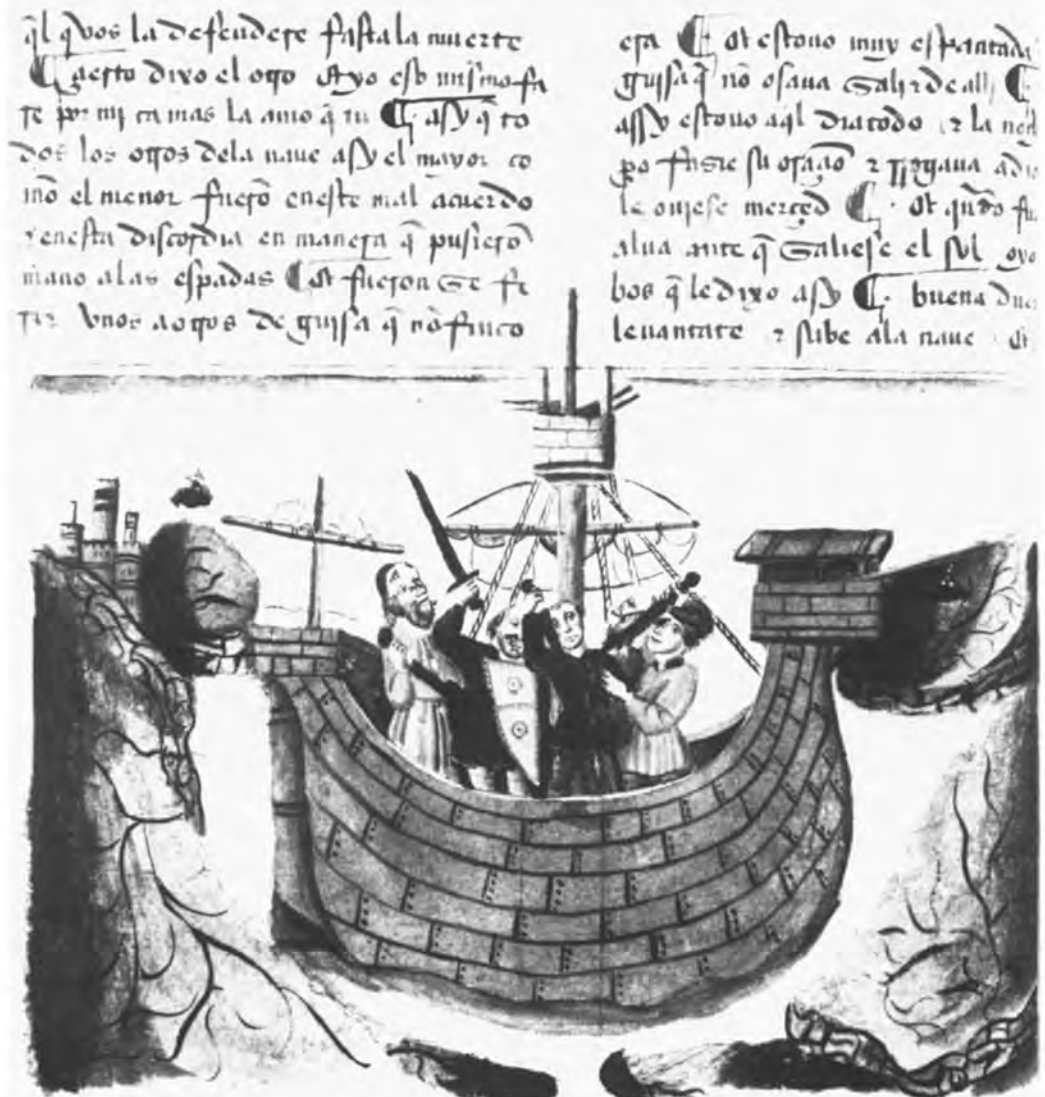 q̃l q̃ vos la defendere fasta la muerte
⸿ aesto dixo el otro Ayo eso mismo fa
re por mi ca mas la amo q̃ tu ⸿ asy q̃ to
dos los otros dela naue asy el mayor co
mō el menor fuerō eneste mal acuerdo
⁊ enesta discordia en manera q̃ pusierō
mano alas espadas ⸿ Et fueron se fe
rir vnos aotros de guisa q̃ nō finco
era ⸿ Et estouo muy espantada
guisa q̃ nō osaua salir de alli ⸿
assy estouo aq̃l dia todo ⁊ la noch
po su oraçō ⁊ rrogaua a di
le ouiese merçed ⸿ Et quādo fu
alua ante q̃ saliese el sol oyo
bos q̃ le dixo asy ⸿ buena due
leuantate ⁊ sube ala naue Et